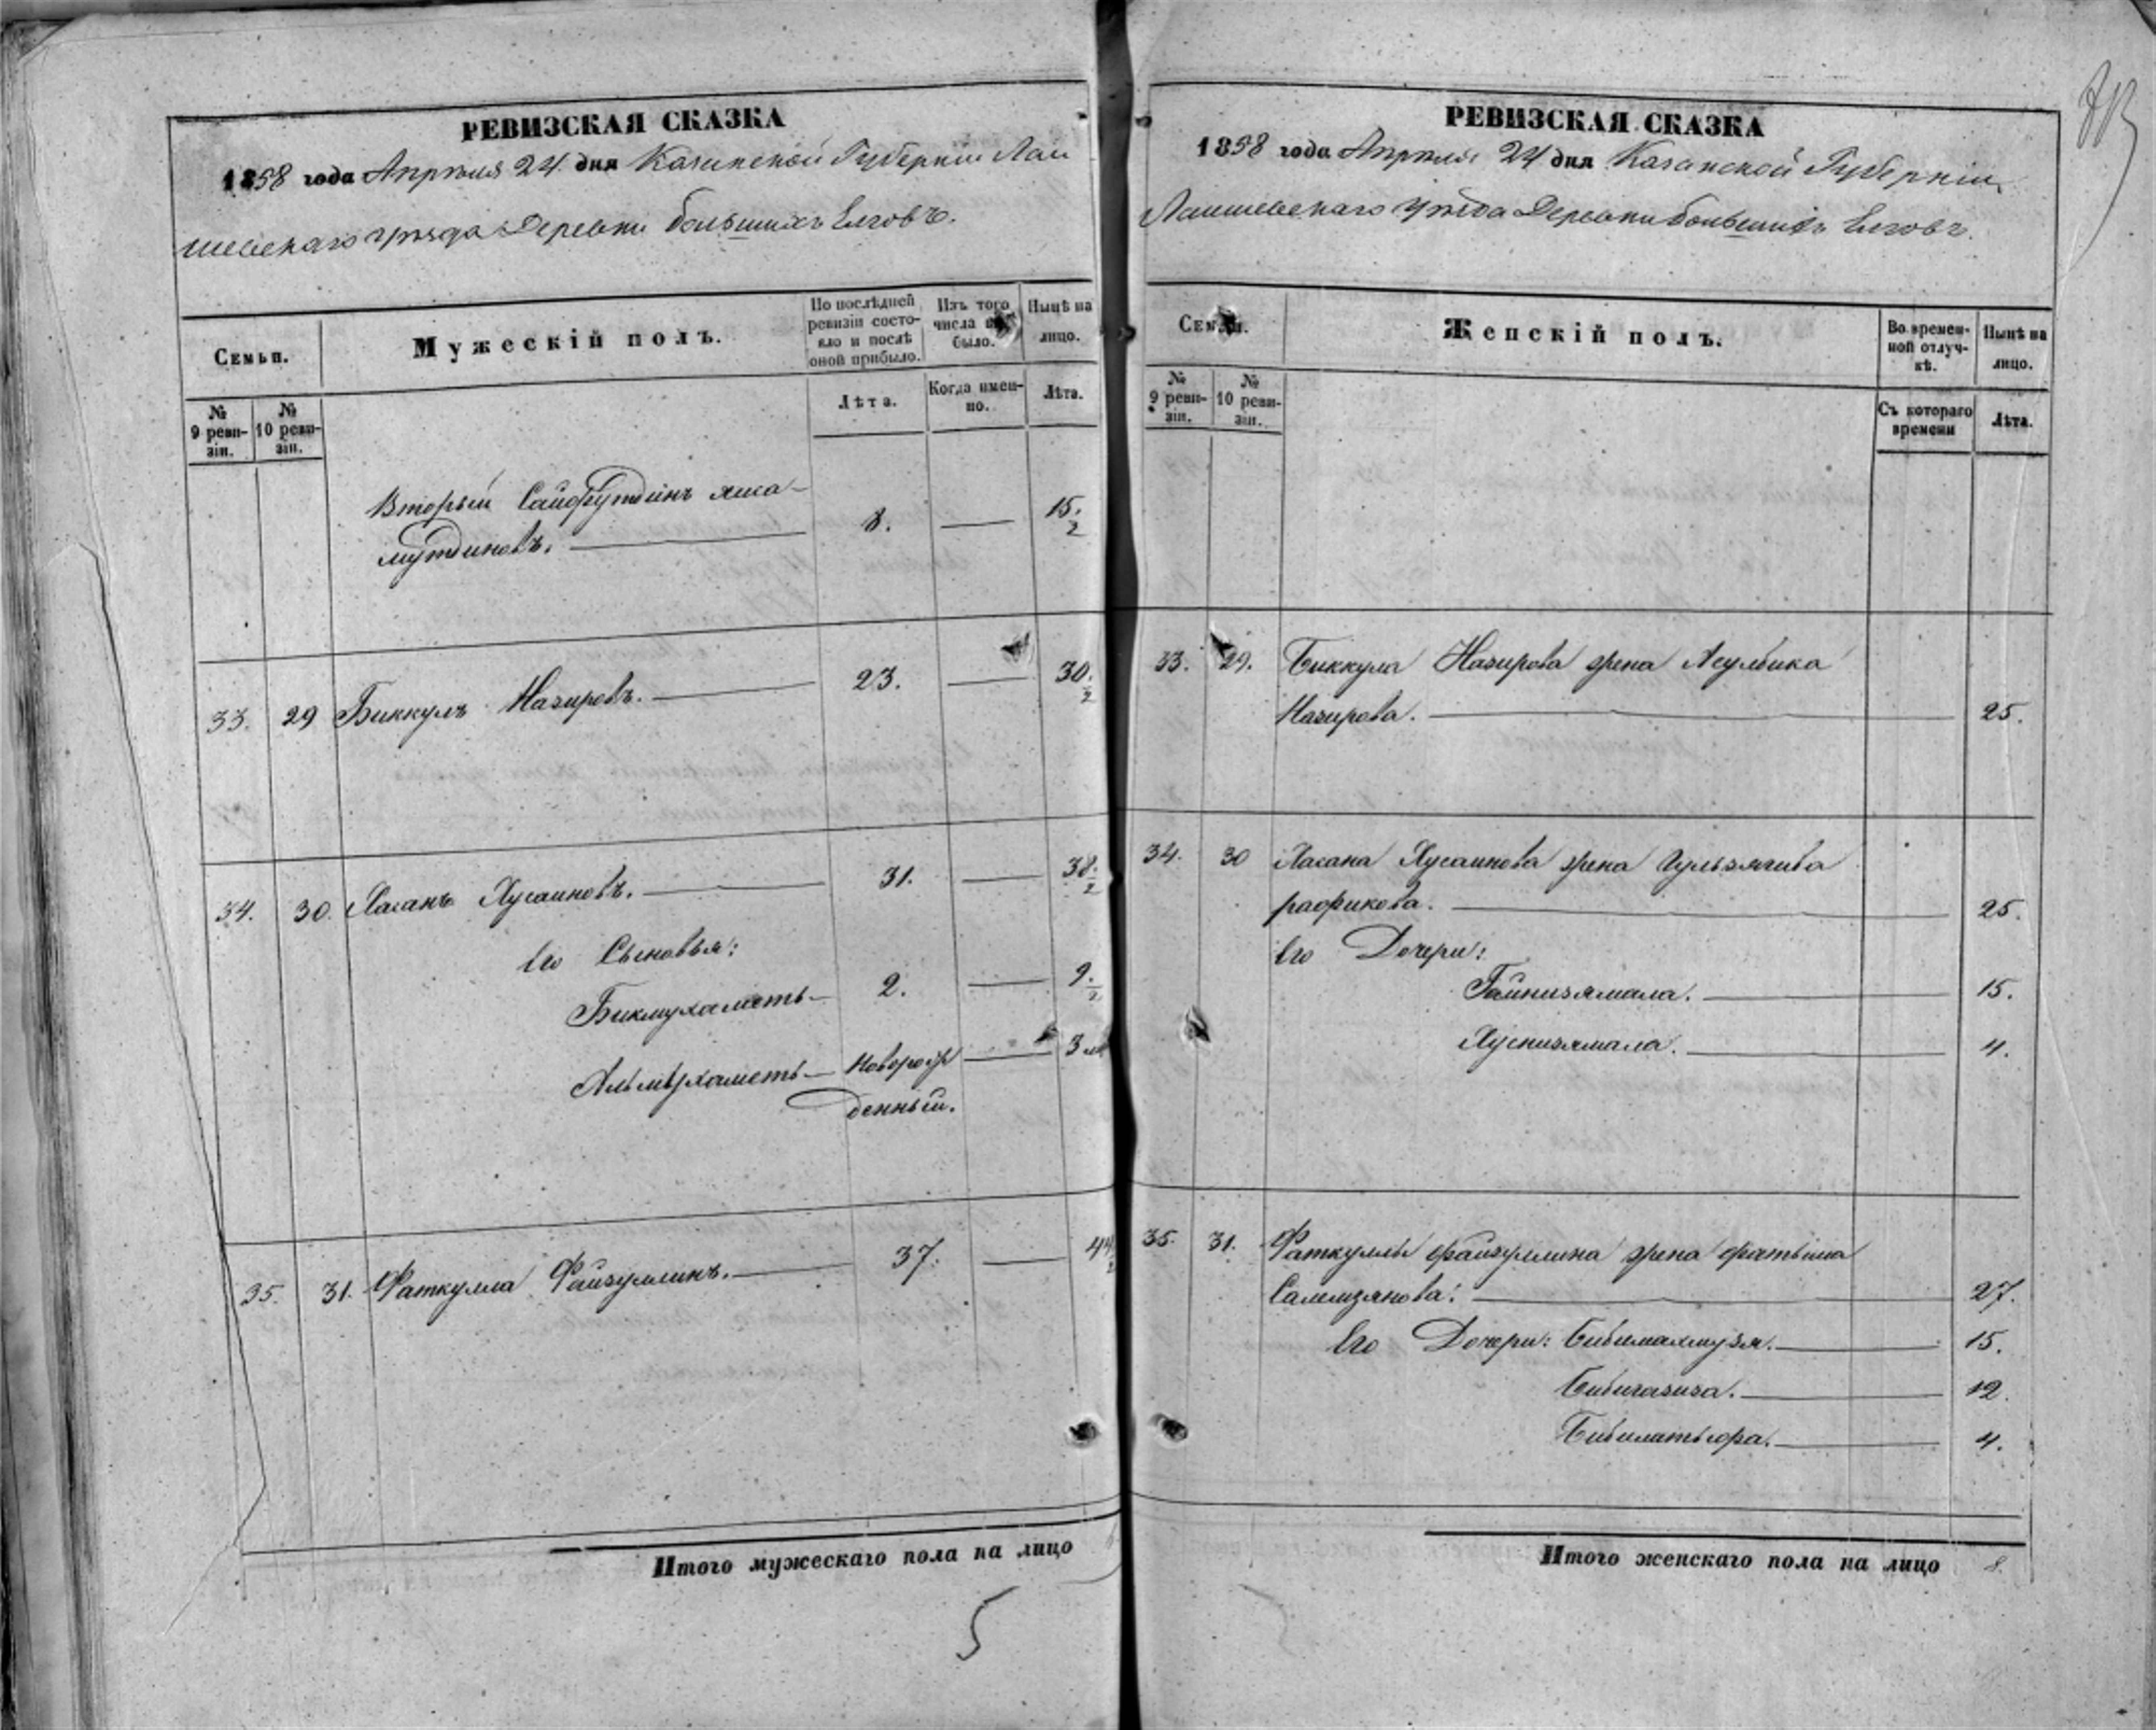 РЕВИЗСКАЯ СКАЗКА
1858 года Апрѣля 24 дня Казанской Губерніи Лаи
шевскаго уѣзда Деревни большихъ Елговъ.
Семьи.
Мужескій полъ.
По послѣдней ревизіи состояло и послѣ оной прибыло.
Изъ того числа было.
Нынѣ на лицо.
№ 9 ревизіи.
№ 10 ревизіи.
Лѣта.
Когда именно.
Лѣта.
Вторый Сайфутдинъ
мутдиновъ. 8. 15. 2
33. 29 Биккулъ Назировъ. 23. 30. 2
34. 30. Хасанъ Хусаиновъ. 31. 38. 2
Его Сыновья:
Бикмухаметь 2. 9. 2
Альмухаметь новорож 3
денный.
35. 31. Фаткулла Файзуллинъ. 37. 44 2
Итого мужескаго пола на лицо
5
РЕВИЗСКАЯ СКАЗКА
1858 года Апрѣля 24 дня Казанской Губерніи
Лаишевскаго уѣзда Деревни большихъ Елговъ.
Семьи.
Женскій полъ.
Во временной отлучкѣ.
Нынѣ на лицо.
№ 9 ревизіи.
№ 10 ревизіи.
Съ котораго времени
Лѣта.
33. 29. Биккула Назирова жена
Назирова. 25.
34. 30 Хасана Хусаинова жена
рафикова. 25.
Его Дочери:
Гайнизямала. 15.
Хуснизямала. 4.
35. 31. Фаткуллы файзуллина жена фатыма
Салимзянова. 27.
Его Дочери: Бибимахмузя. 15.
Бибигазиза. 12.
4.
Итого женскаго пола на лицо 8.